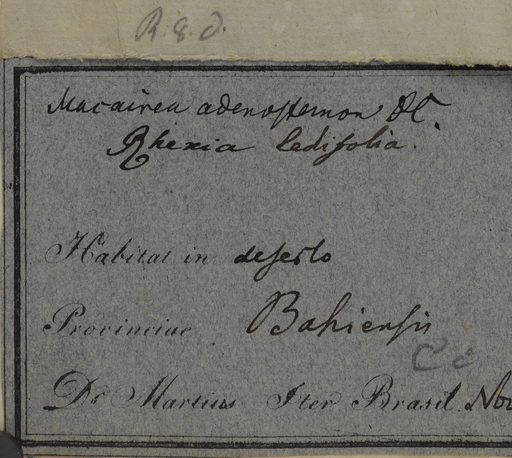 R. 8. d.
Macairea adenostemon DC.
Rhexia ledifolia.
Habitat in deserto
Provinciae Bahiensis
C c
Dr Martius Iter Brasil. Nov